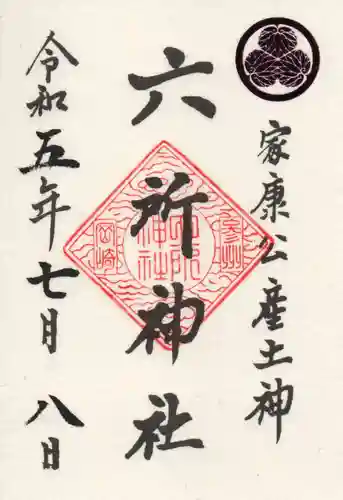 家康公産土神
六所神社
令和五年七月八日
参州
六所神社
岡崎